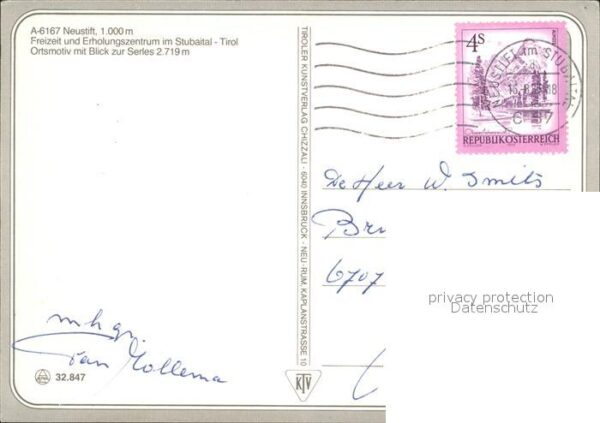 A-6167 Neustift, 1.000 m
Freizeit und Erholungszentrum im Stubaital - Tirol
Ortsmotiv mit Blick zur Serles 2.719 m
TIROLER KUNSTVERLAG CHIZZALI - 6040 INNSBRUCK - NEU-RUM, KAPLANSTRASSE 10
4S
REPUBLIK ÖSTERREICH
NEUSTIFT im STUBAITAL
De Heer W. Smits
6707
privacy protection
Datenschutz
m h gr.
32.847
KTV